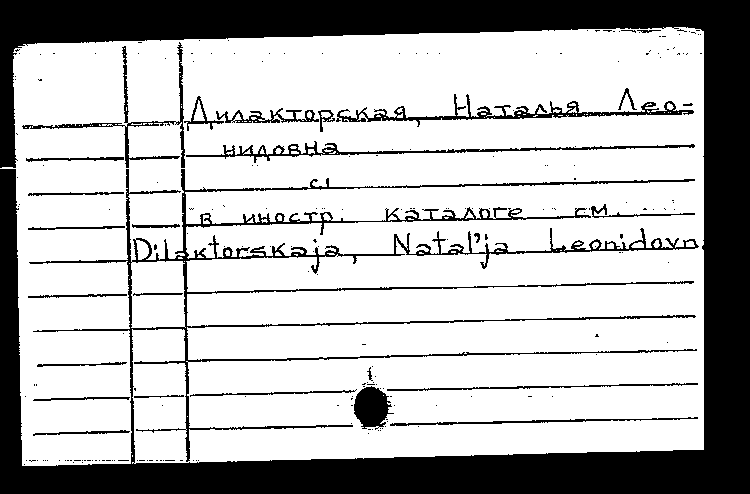 Дилакторская, Наталья Лео-
нидовна
в иностр. каталоге см.
Dilaktorskaja, Natal'ja Leonidovn